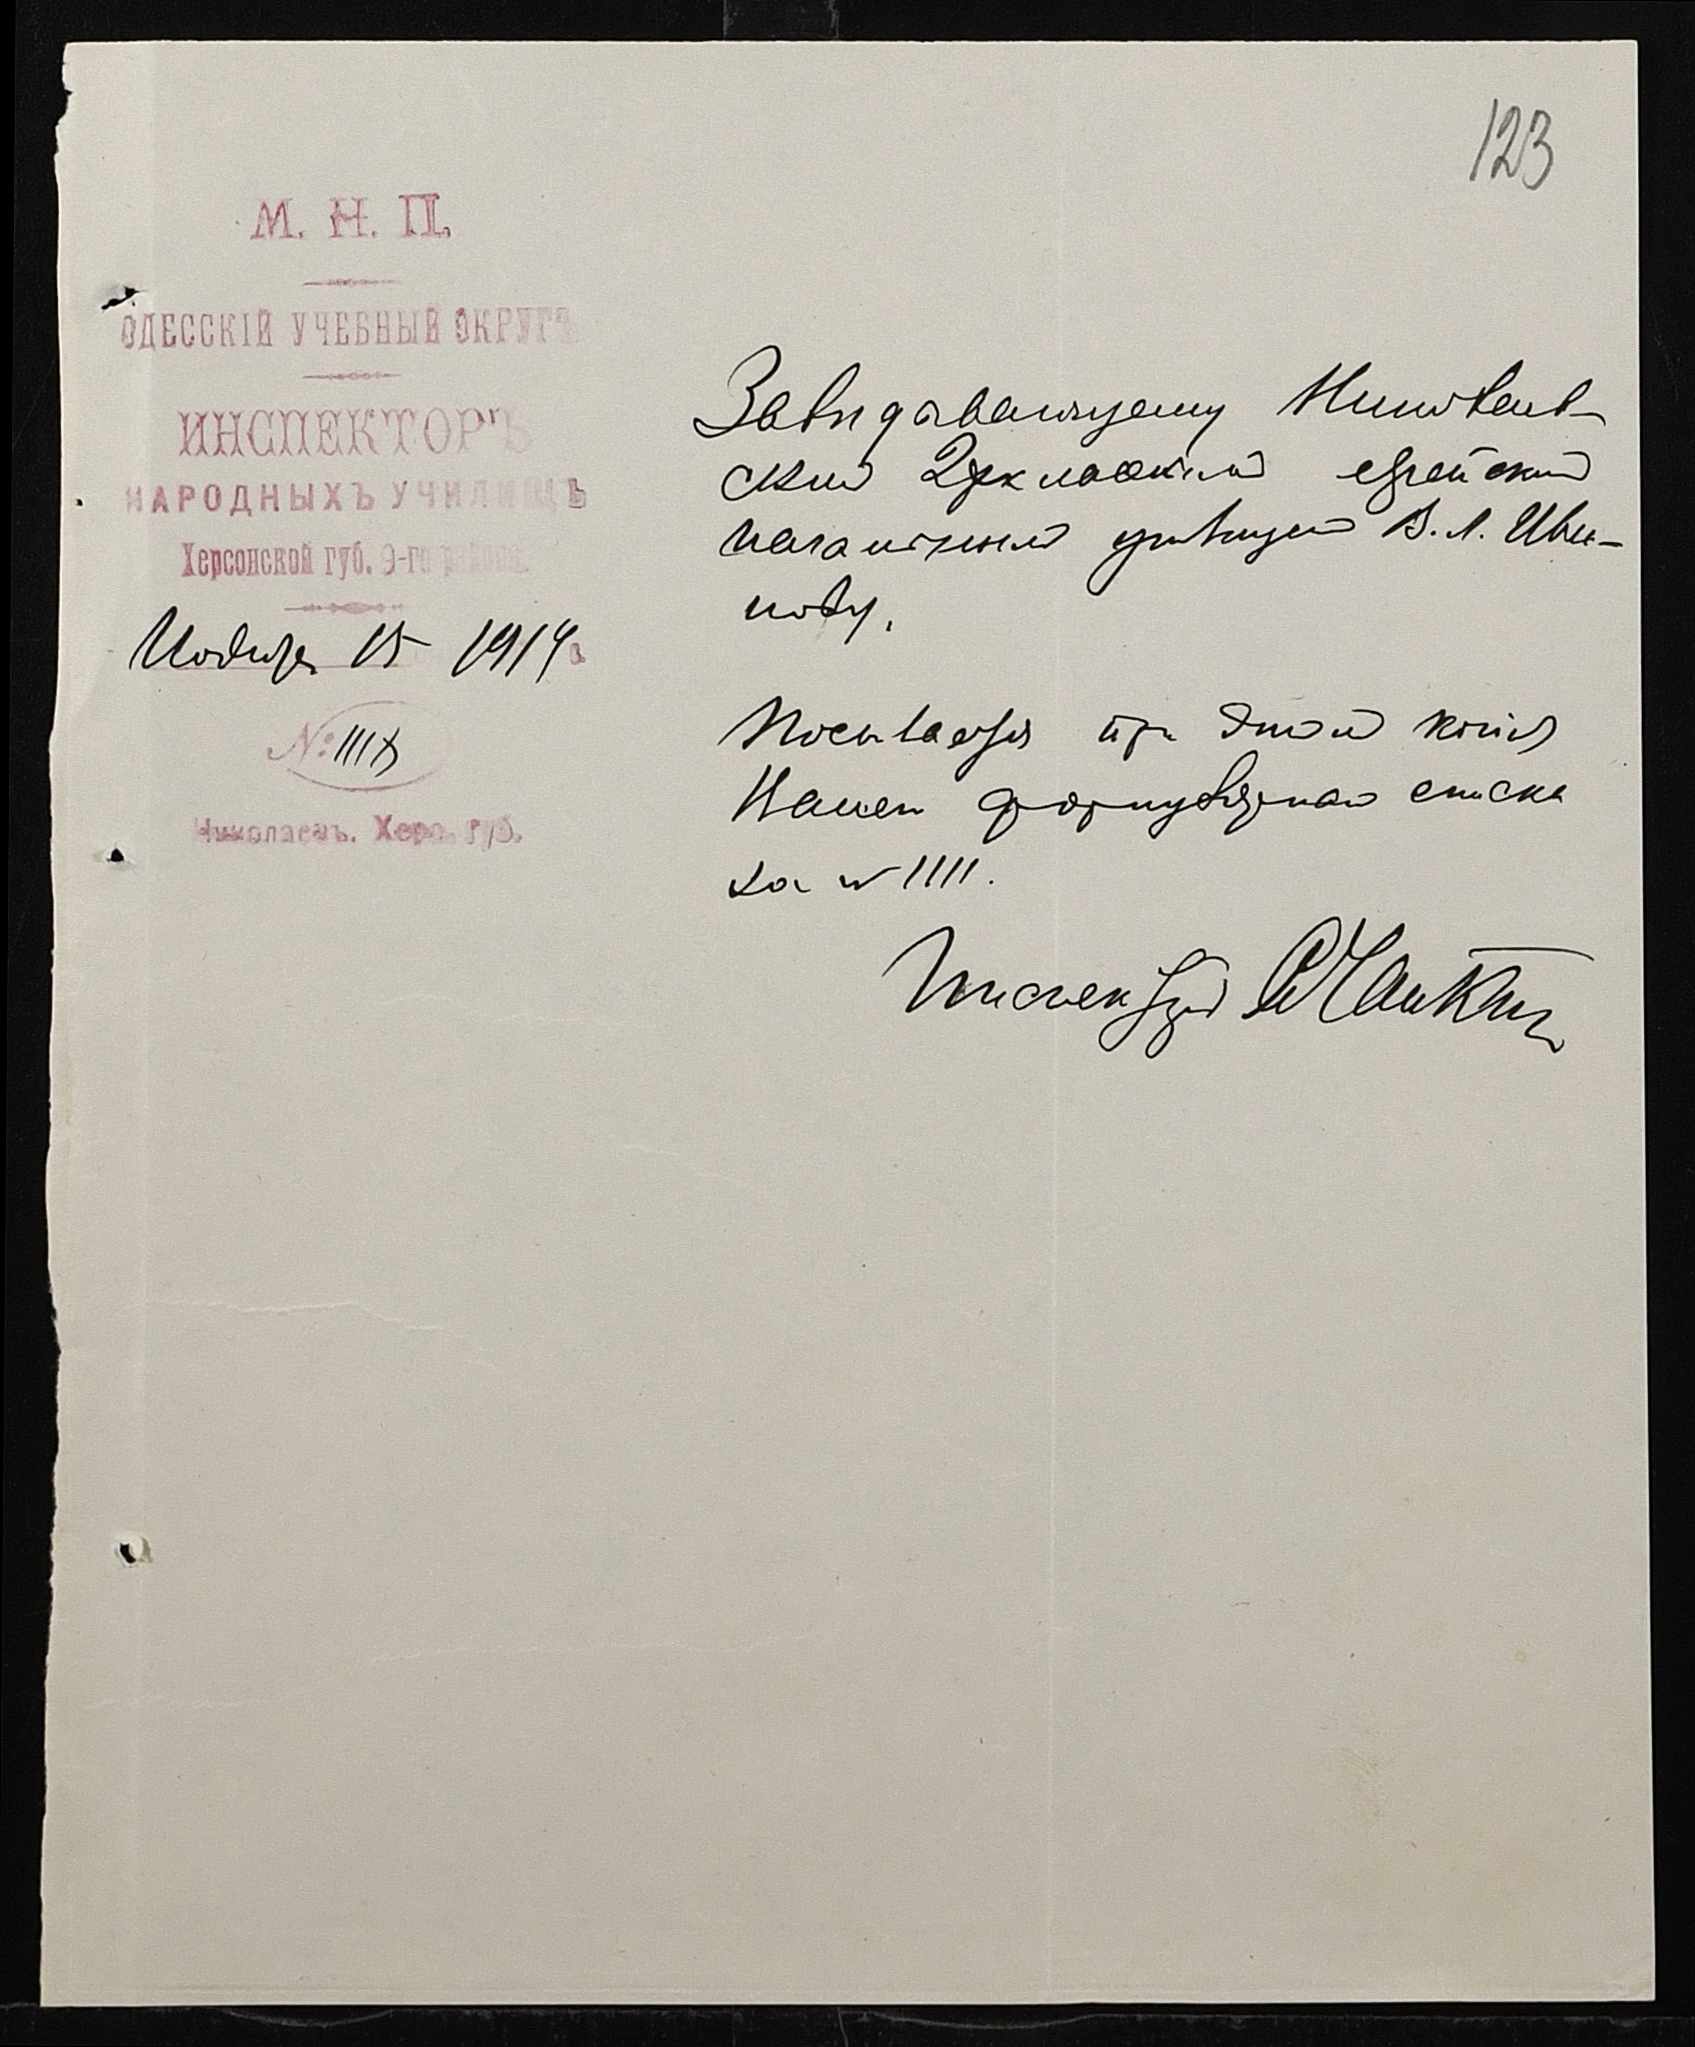 123
М. Н. П.
ОДЕССКІЙ УЧЕБНЫЙ ОКРУГЪ
ИНСПЕКТОРЪ
НАРОДНЫХЪ УЧИЛИЩЪ
Херсонской губ. 9-го района.
15 1914 г.
№ 1118
Николаевъ. Херс. губ.
Завѣдывающему Николаев-
ским 2хклассным еврейским
начальным училищем В. Л.
Посылается при этом копія
формулярнаго списка
за № 1111.
Инспектор